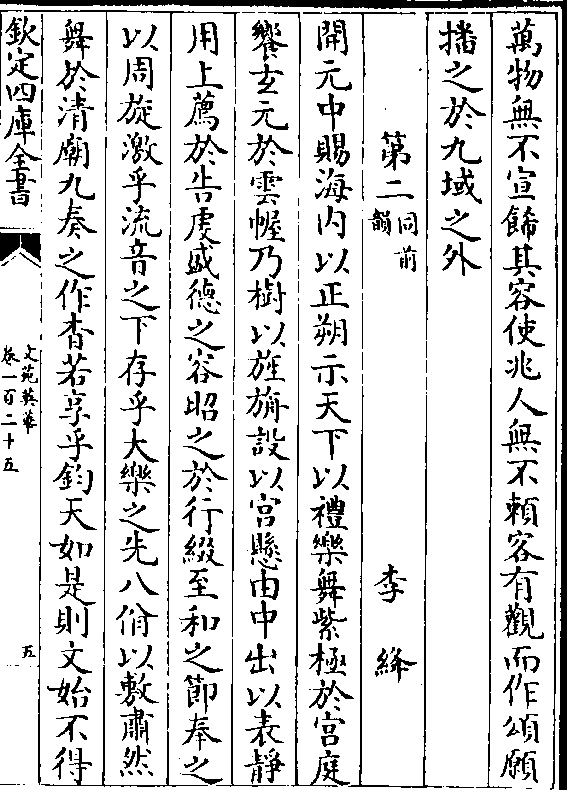 萬物無不宣餙其容使兆人無不頼客有觀而作頌願
播之於九域之外
第二同前韻 李絳
開元中賜海内以正朔示天下以禮樂舞紫極於宮庭
饗玄元於雲幄乃樹以旌旃設以宮懸由中出以表静
用上薦於告虔盛德之容昭之於行綴至和之節奉之
以周旋激乎流音之下存乎大樂之先八佾以敷肅然
舞於清廟九奏之作杳若享乎鈞天如是則文始不得
欽定四庫全書
文苑英華
卷一百二十五
五